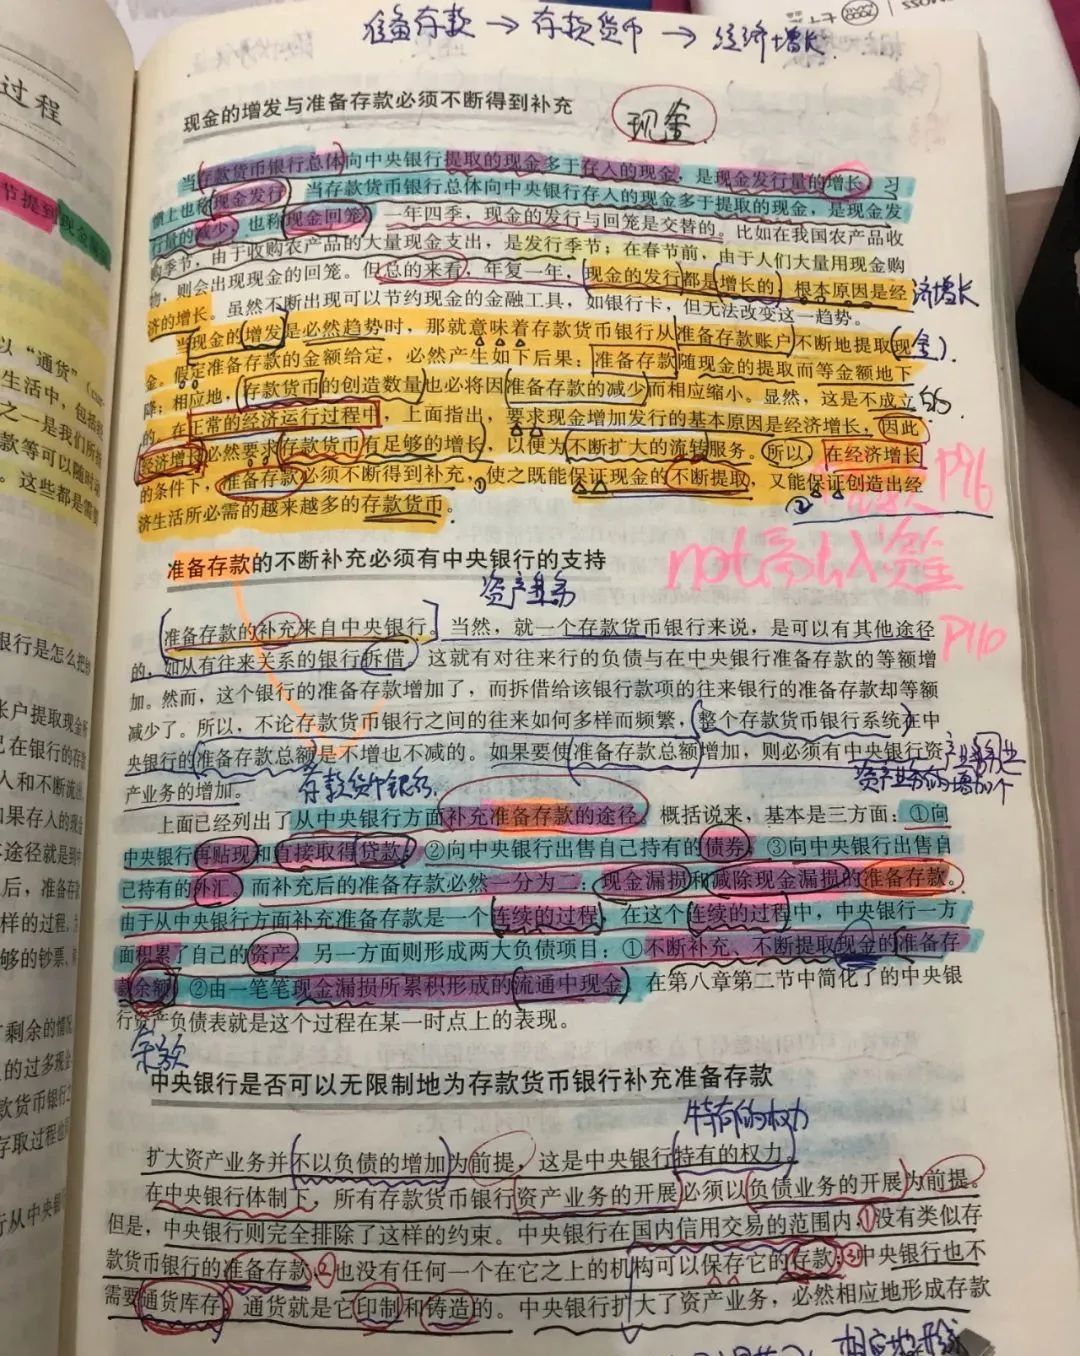 准备存款 → 存款货币 → 经济增长
现金的增发与准备存款必须不断得到补充
现金
当存款货币银行总体向中央银行提取的现金多于存入的现金，是现金发行量的增长，习
惯上也称现金发行；当存款货币银行总体向中央银行存入的现金多于提取的现金，是现金发
行量的减少，也称现金回笼。一年四季，现金的发行与回笼是交替的。比如在我国农产品收
购季节，由于收购农产品的大量现金支出，是发行季节；在春节前，由于人们大量用现金购
物，则会出现现金的回笼。但总的来看，年复一年，现金的发行都是增长的，根本原因是经
济增长
济的增长。虽然不断出现可以节约现金的金融工具，如银行卡，但无法改变这一趋势。
当现金的增发是必然趋势时，那就意味着存款货币银行从准备存款账户不断地提取现
金）
金。假定准备存款的金额给定，必然产生如下后果：准备存款随现金的提取而等金额地下
降；相应地，存款货币的创造数量也必将因准备存款的减少而相应缩小。显然，这是不成立
的
的。在正常的经济运行过程中，上面指出，要求现金增加发行的基本原因是经济增长，因此
经济增长必然要求存款货币有足够的增长，以便为不断扩大的流转服务。所以，在经济增长
的条件下，准备存款必须不断得到补充，①使之既能保证现金的不断提取，又能保证创造出经
②
济生活所必需的越来越多的存款货币。
P96
准备存款的不断补充必须有中央银行的支持
资产业务
准备存款的补充来自中央银行。当然，就一个存款货币银行来说，是可以有其他途径
P110
的，如从有往来关系的银行拆借。这就有对往来行的负债与在中央银行准备存款的等额增
加。然而，这个银行的准备存款增加了，而拆借给该银行款项的往来银行的准备存款却等额
减少了。所以，不论存款货币银行之间的往来如何多样而频繁，整个存款货币银行系统在中
央银行的准备存款总额是不增也不减的。如果要使准备存款总额增加，则必须有中央银行资
产业务的增加。
存款货币银行
上面已经列出了从中央银行方面补充准备存款的途径。概括说来，基本是三方面：①向
中央银行再贴现和直接取得贷款；②向中央银行出售自己持有的债券；③向中央银行出售自
己持有的外汇。而补充后的准备存款必然一分为二：现金漏损和减除现金漏损的准备存款。
由于从中央银行方面补充准备存款是一个连续的过程，在这个连续的过程中，中央银行一方
面积累了自己的资产，另一方面则形成两大负债项目：①不断补充、不断提取现金的准备存
款余额；②由一笔笔现金漏损所累积形成的流通中现金。在第八章第二节中简化了的中央银
行资产负债表就是这个过程在某一时点上的表现。
余额
中央银行是否可以无限制地为存款货币银行补充准备存款
特有的权力
扩大资产业务并不以负债的增加为前提，这是中央银行特有的权力。
在中央银行体制下，所有存款货币银行资产业务的开展必须以负债业务的开展为前提。
但是，中央银行则完全排除了这样的约束。中央银行在国内信用交易的范围内，①没有类似存
款货币银行的准备存款，②也没有任何一个在它之上的机构可以保存它的存款；③中央银行也不
需要通货库存，通货就是它印制和铸造的。中央银行扩大了资产业务，必然相应地形成存款
过程
节提到现金
以“通货”
生活中，包括
之一是我们所
款等可以随时
。这些都是需
银行是怎么把
账户提取现金
己在银行的存款
人和不断流
如果存入的现金
途径就是
后，准备存
样的过程。
够的钞票、
剩余的情况
的过多现金
款货币银行
存取过程
行从中央银